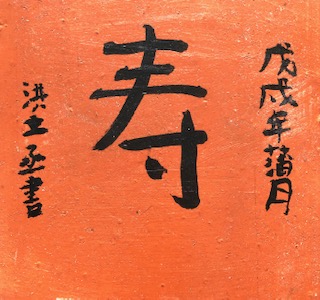 戊戌年蒲月
寿
洪士丞書